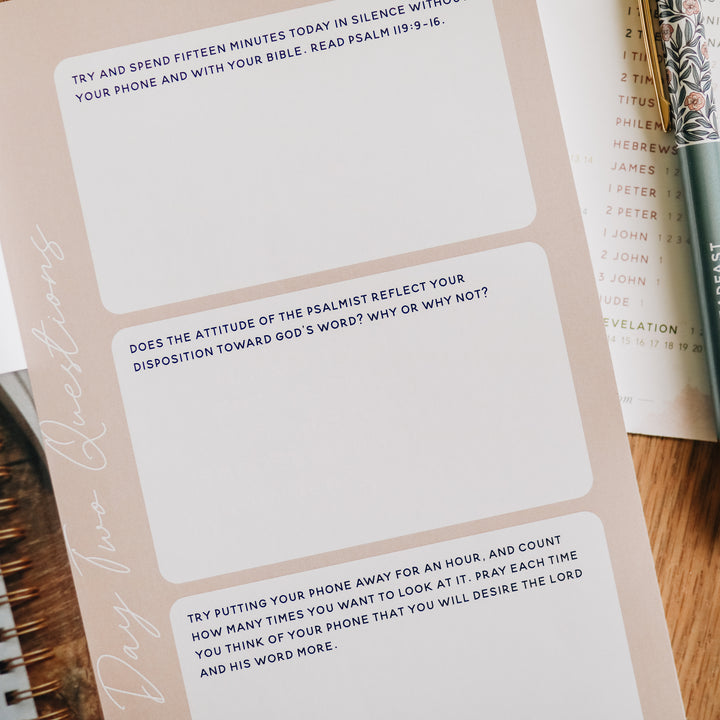 TRY AND SPEND FIFTEEN MINUTES TODAY IN SILENCE WITHOUT
YOUR PHONE AND WITH YOUR BIBLE. READ PSALM 119:9-16.
DOES THE ATTITUDE OF THE PSALMIST REFLECT YOUR
DISPOSITION TOWARD GOD'S WORD? WHY OR WHY NOT?
TRY PUTTING YOUR PHONE AWAY FOR AN HOUR, AND COUNT
HOW MANY TIMES YOU WANT TO LOOK AT IT. PRAY EACH TIME
YOU THINK OF YOUR PHONE THAT YOU WILL DESIRE THE LORD
AND HIS WORD MORE.
Day Two Questions
1 TIM
2 TIM
TITUS
PHILEM
HEBREWS
13 14
JAMES 1 2
1 PETER
2 PETER
1 JOHN 1 2 3 4
2 JOHN 1
3 JOHN 1
JUDE 1
REVELATION 1 2
14 15 16 17 18 19 20